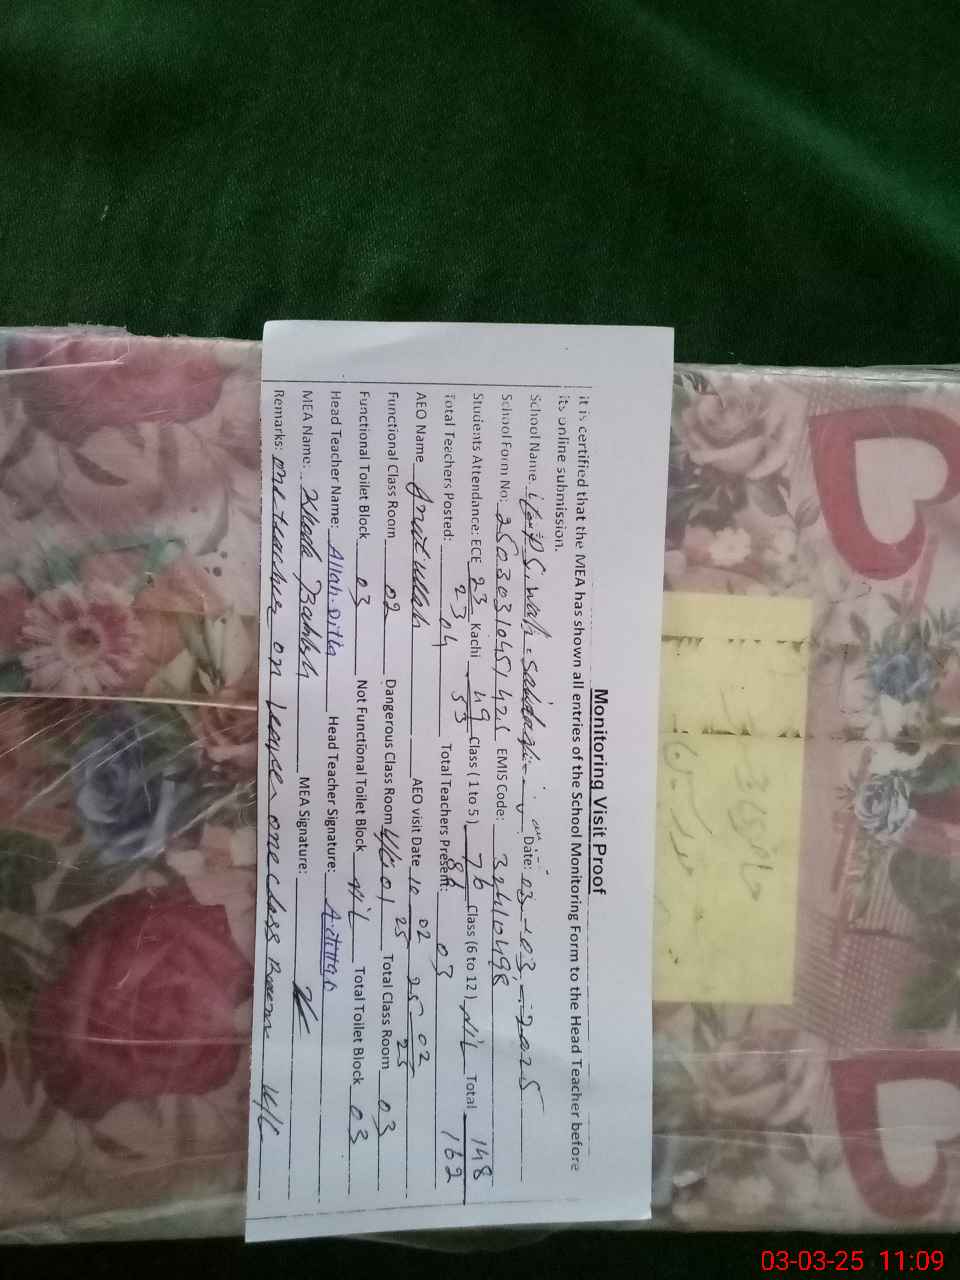 Monitoring Visit Proof
it is certified that the MEA has shown all entries of the School Monitoring Form to the Head Teacher before
its online submission.
School Name Date: 03-03-2025
School Form No: EMIS Code:
Students Attendance: ECE 23/23 Kachi 49/53 Class (1 to 5) 76/86 Class (6 to 12) Nil Total 148/162
Total Teachers Posted: 04 Total Teachers Present: 03
AEO Name AEO visit Date 10 02 25 25 02 25
Functional Class Room 02 Dangerous Class Room 01 Total Class Room 03
Functional Toilet Block 03 Not Functional Toilet Block Nil Total Toilet Block 03
Head Teacher Name: Allah Ditta Head Teacher Signature: A.ditta
MEA Name: Khuda Bakhsh MEA Signature:
Remarks: one teacher on leave, one class Room U/C
03-03-25 11:09